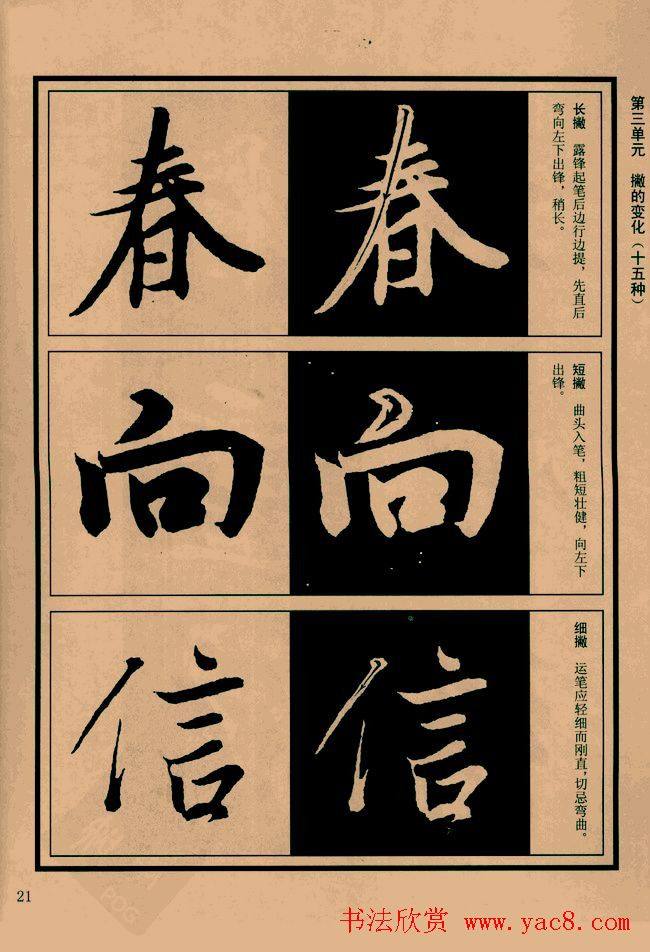 第三单元 撇的变化(十五种)
长撇 露锋起笔后边行边提，先直后
弯向左下出锋，稍长。
春 春
短撇 曲头入笔，粗短壮健，向左下
出锋。
向 向
细撇 运笔应轻细而刚直，切忌弯曲。
信 信
21
书法欣赏 www.yac8.com